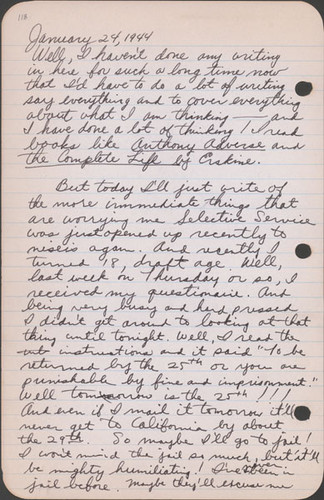 118
January 24, 1944
Well, I haven't done any writing
in here for such a long time now
that I'd have to do a lot of writing
say everything and to cover everything
about what I am thinking — and
I have done a lot of thinking! I read
books like Anthony Adverse and
the Complete Life by Erskine.
But today I'll just write of
the more immediate things that
are worrying me. Selective Service
was just opened up recently to
niseis again. And recently I
turned 18, draft age. Well,
last week on Thursday or so, I
received my questionaire. And
being very busy and hard pressed
I didn't get around to looking at that
thing until tonight. Well, I read the
instructions and it said "to be
returned by the 25th or you are
punishable by fine and imprisonment."
Well tomorrow is the 25th!!!
And even if I mail it tomorow it'll
never get to California by about
the 29th. So maybe I'll go to jail!
I won't mind the jail so much, but it'll
be mighty humiliating! I've been in
jail before. Maybe they'll excuse me